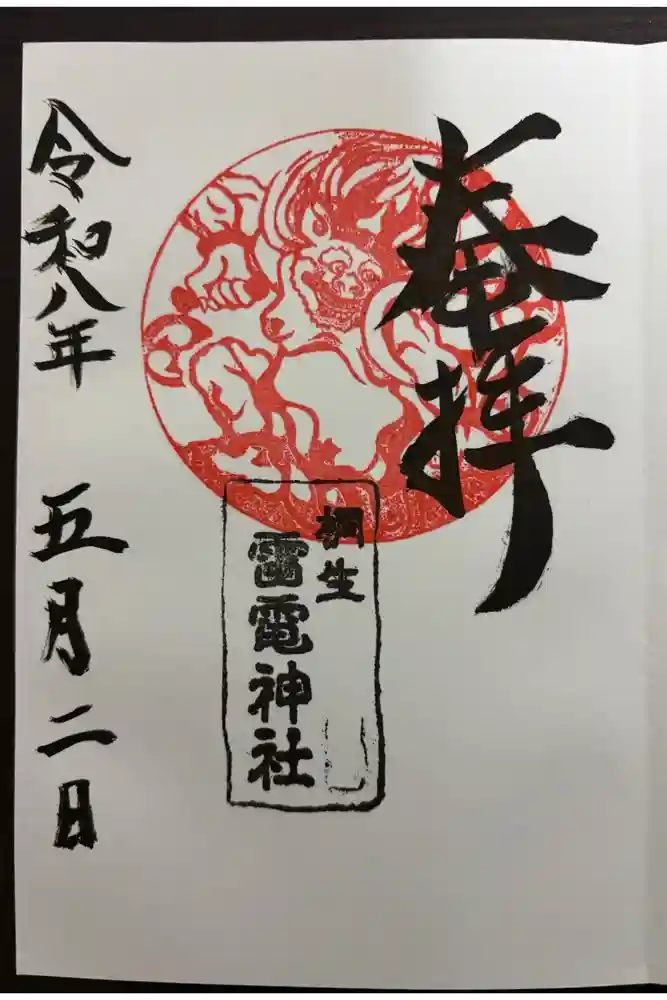 奉拝
桐生
雷電神社
令和八年
五月二日